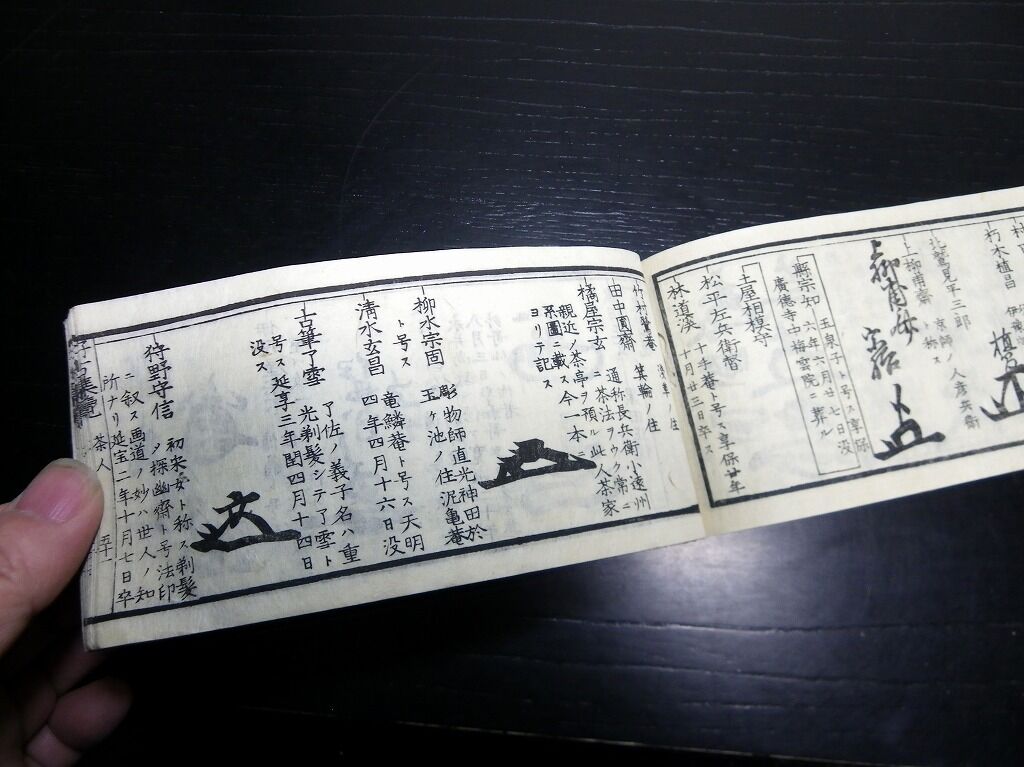 朽木植昌
北鷲見平三郎 京師ノ人彦兵衛
上柳甫斎 ト称ス
無宗知 五泉子ト号ス享保
六年六月廿七日没
廣徳寺中梅雲院ニ葬ル
土屋相模守
松平左兵衛督
林道漢 十千菴ト号ス享保廿年
十月廿三日卒ス
竹村鷺庵 浅草ノ住
田中圓齋 箕輪ノ住
橘屋宗玄 通称長兵衛小遠州
ニ茶法ヲウク常ニ
親近ノ茶亭ヲ預ル此人茶家
系圖ニ載ス今一本ニ
ヨリテ記ス
柳水宗固 彫物師直光神田於
玉ヶ池ノ住泥亀菴
ト号ス
清水玄昌 竜鱗菴ト号ス天明
四年四月十六日没
古筆了雪 了佐ノ義子名ハ重
光剃髪シテ了雪ト
号ス延享三年閏四月十四日
没ス
狩野守信 初采女ト称ス剃髪
シ探幽齋ト号法印
ニ叙ス画道ノ妙ハ世人ノ知
所ナリ延宝二年十月七日卒
茶人 五十一